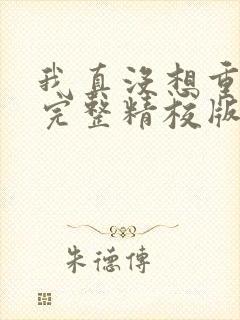 我真没想重
完整精校版
朱德傳